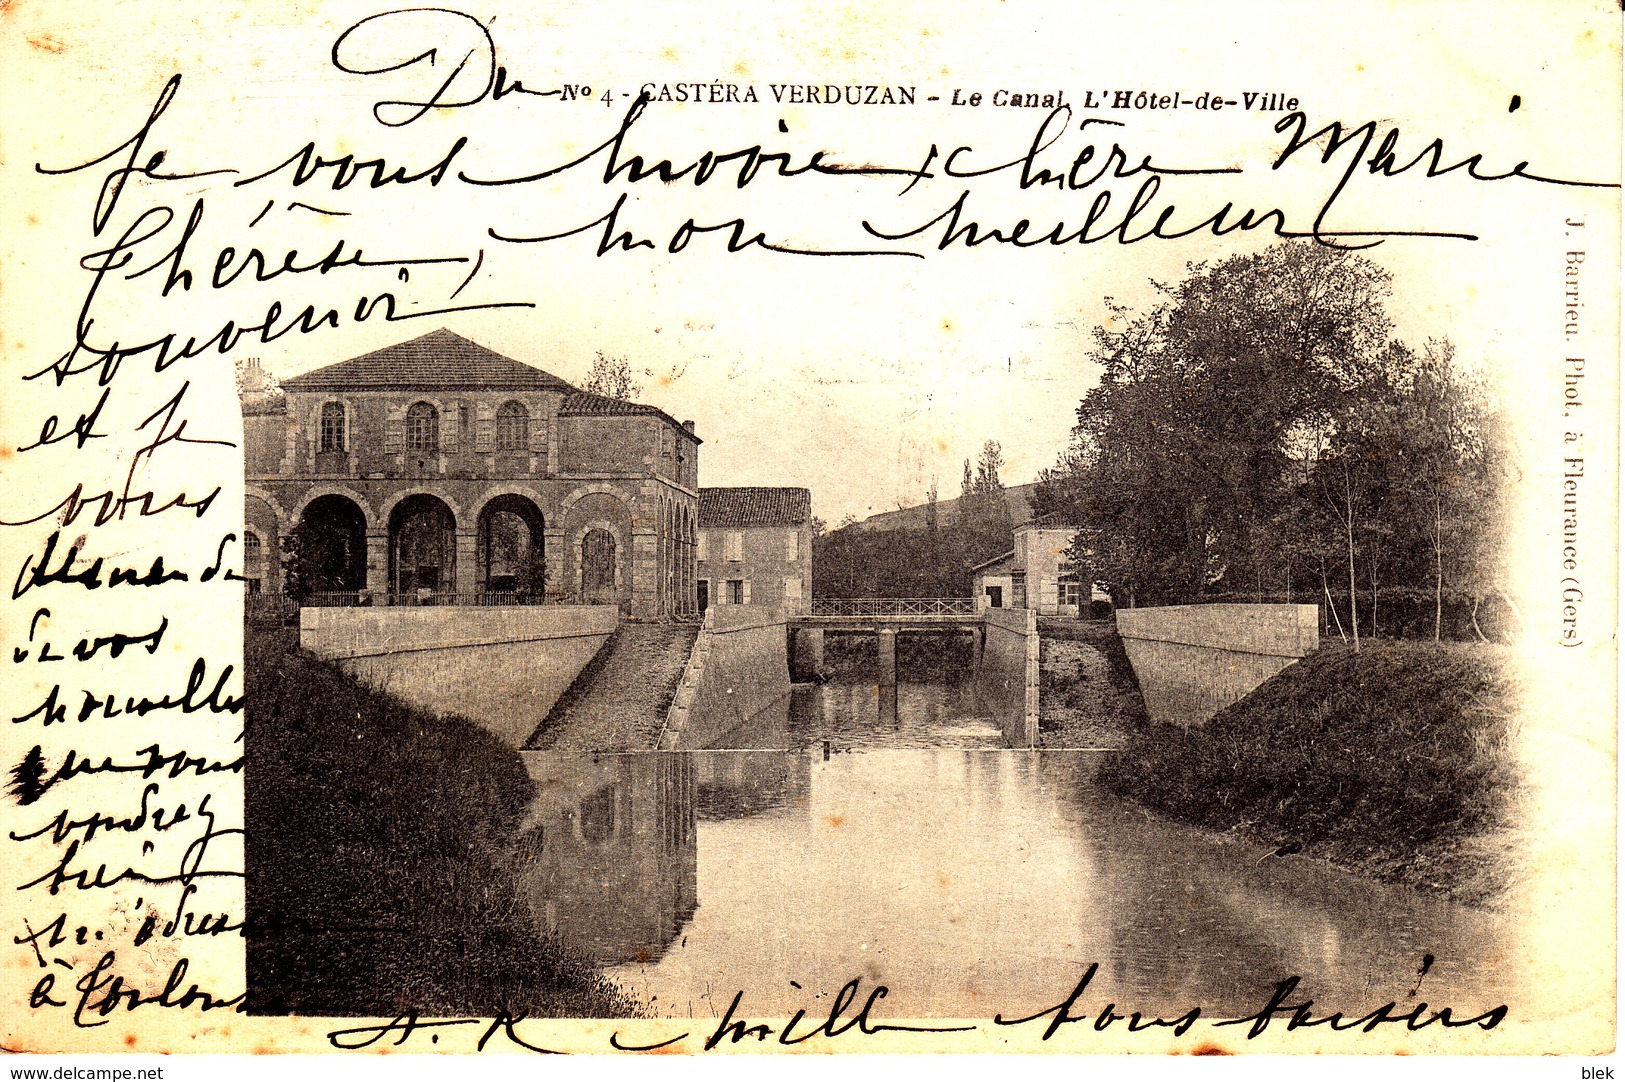 Du
No 4 - CASTÉRA VERDUZAN - Le Canal, L'Hôtel-de-Ville
Je vous envoie chère Marie
Thérèse, mon meilleur
souvenir
et je
vous
demande
de vos
nouvelles
que vous
voudrez
bien
m'adresser
à Toulouse
A. K mille bons baisers
J. Barrieu. Phot, à Fleurance (Gers)
www.delcampe.net
blek